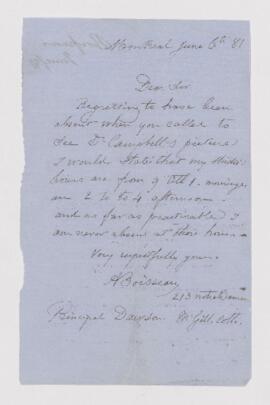 Montreal June 6th 81
Dear Sir
Regretting to have been
absent when you called to
see Dr Campbell's picture
I would state that my studio
hours are from 9 till 1, mornings
2 to 4 afternoon
and as far as practicable I
am never absent at those hours
Very respectfully yours
A Boisseau
213 Notre Dame
Principal Dawson McGill Coll.